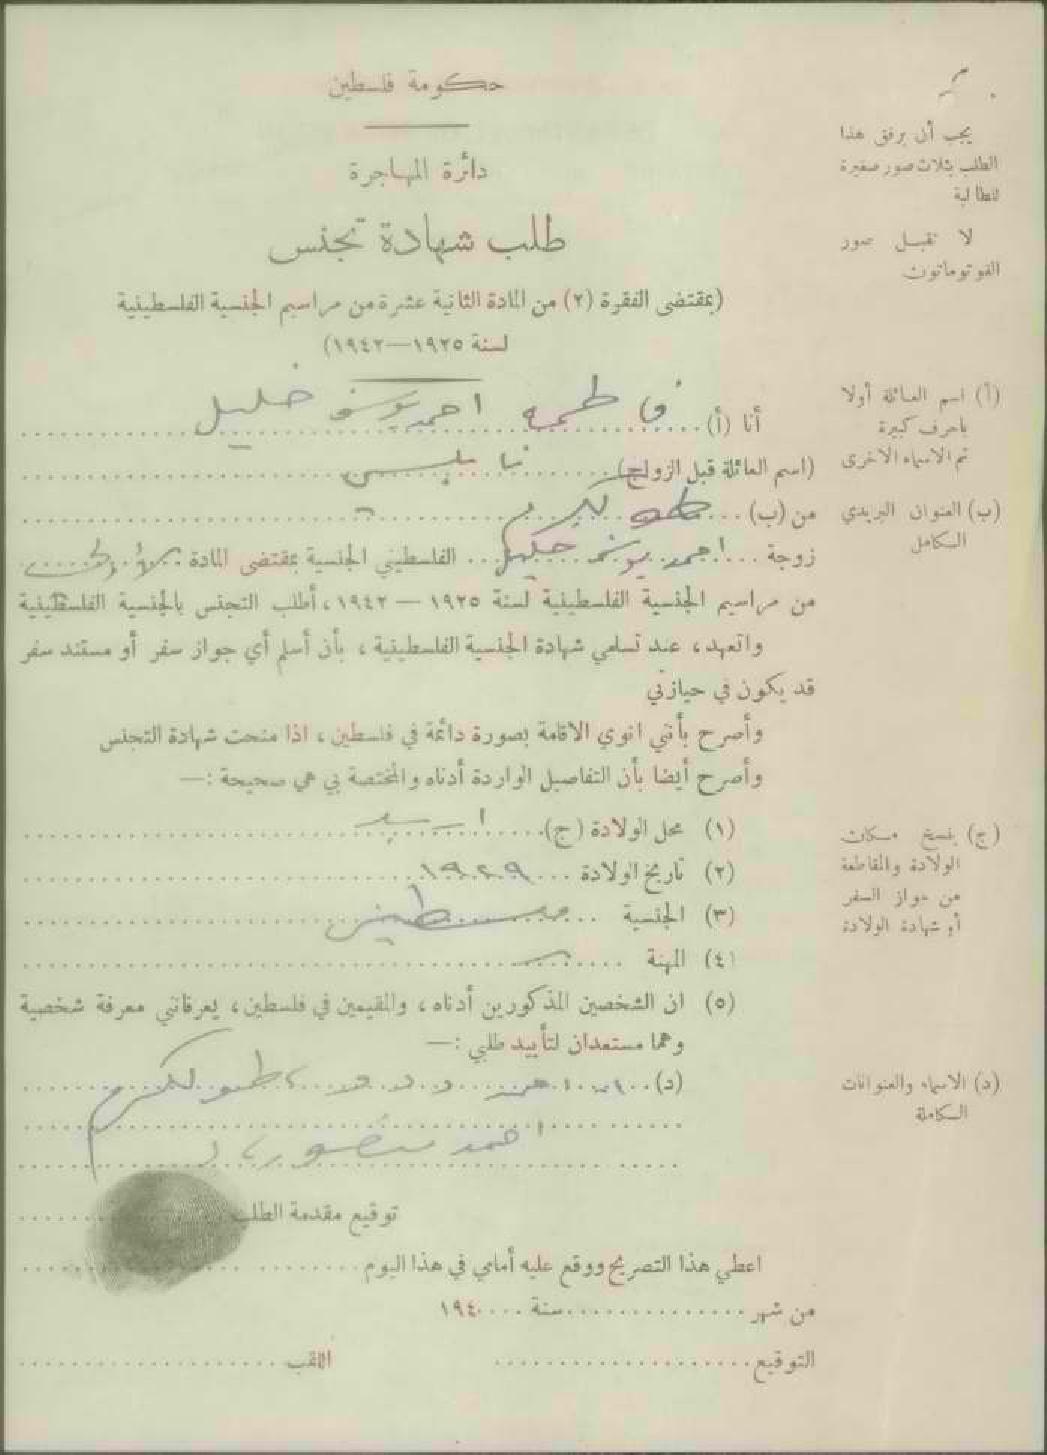 حكومة فلسطين
دائرة المهاجرة
طلب شهادة تجنس
(بمقتضى الفقرة (٢) من المادة الثانية عشرة من مراسيم الجنسية الفلسطينية
لسنة ١٩٢٥—١٩٤٢)
يجب أن يرفق هذا
الطلب بثلاث صور صغيرة
للطالبة
لا تقبل صور
الفوتوماتون
(أ) اسم العائلة أولا
باحرف كبيرة
ثم الاسماء الاخرى
(ب) العنوان البريدي
الكامل
أنا (أ) فاطمه احمد يوسف خليل
(اسم العائلة قبل الزواج)
من (ب) طولكرم
زوجة احمد يوسف الفلسطيني الجنسية بمقتضى المادة
من مراسيم الجنسية الفلسطينية لسنة ١٩٢٥ — ١٩٤٢، أطلب التجنس بالجنسية الفلسطينية
واتعهد، عند تسلمي شهادة الجنسية الفلسطينية، بأن أسلم أي جواز سفر أو مستند سفر
قد يكون في حيازتي
وأصرح بأنني انوي الاقامة بصورة دائمة في فلسطين، اذا منحت شهادة التجنس
وأصرح أيضا بأن التفاصيل الواردة أدناه والمختصة بي هي صحيحة :—
(١) محل الولادة (ج)
(٢) تاريخ الولادة ١٩٢٩
(٣) الجنسية
(٤) المهنة
(ج) ينسخ مكان
الولادة والمقاطعة
من جواز السفر
أو شهادة الولادة
(٥) ان الشخصين المذكورين أدناه، والمقيمين في فلسطين، يعرفانني معرفة شخصية
وهما مستعدان لتأييد طلبي :—
(د) طولكرم
احمد منصور
(د) الاسماء والعنوانات
الكاملة
توقيع مقدمة الطلب
اعطي هذا التصريح ووقع عليه أمامي في هذا اليوم
من شهر سنة ١٩٤
التوقيع اللقب